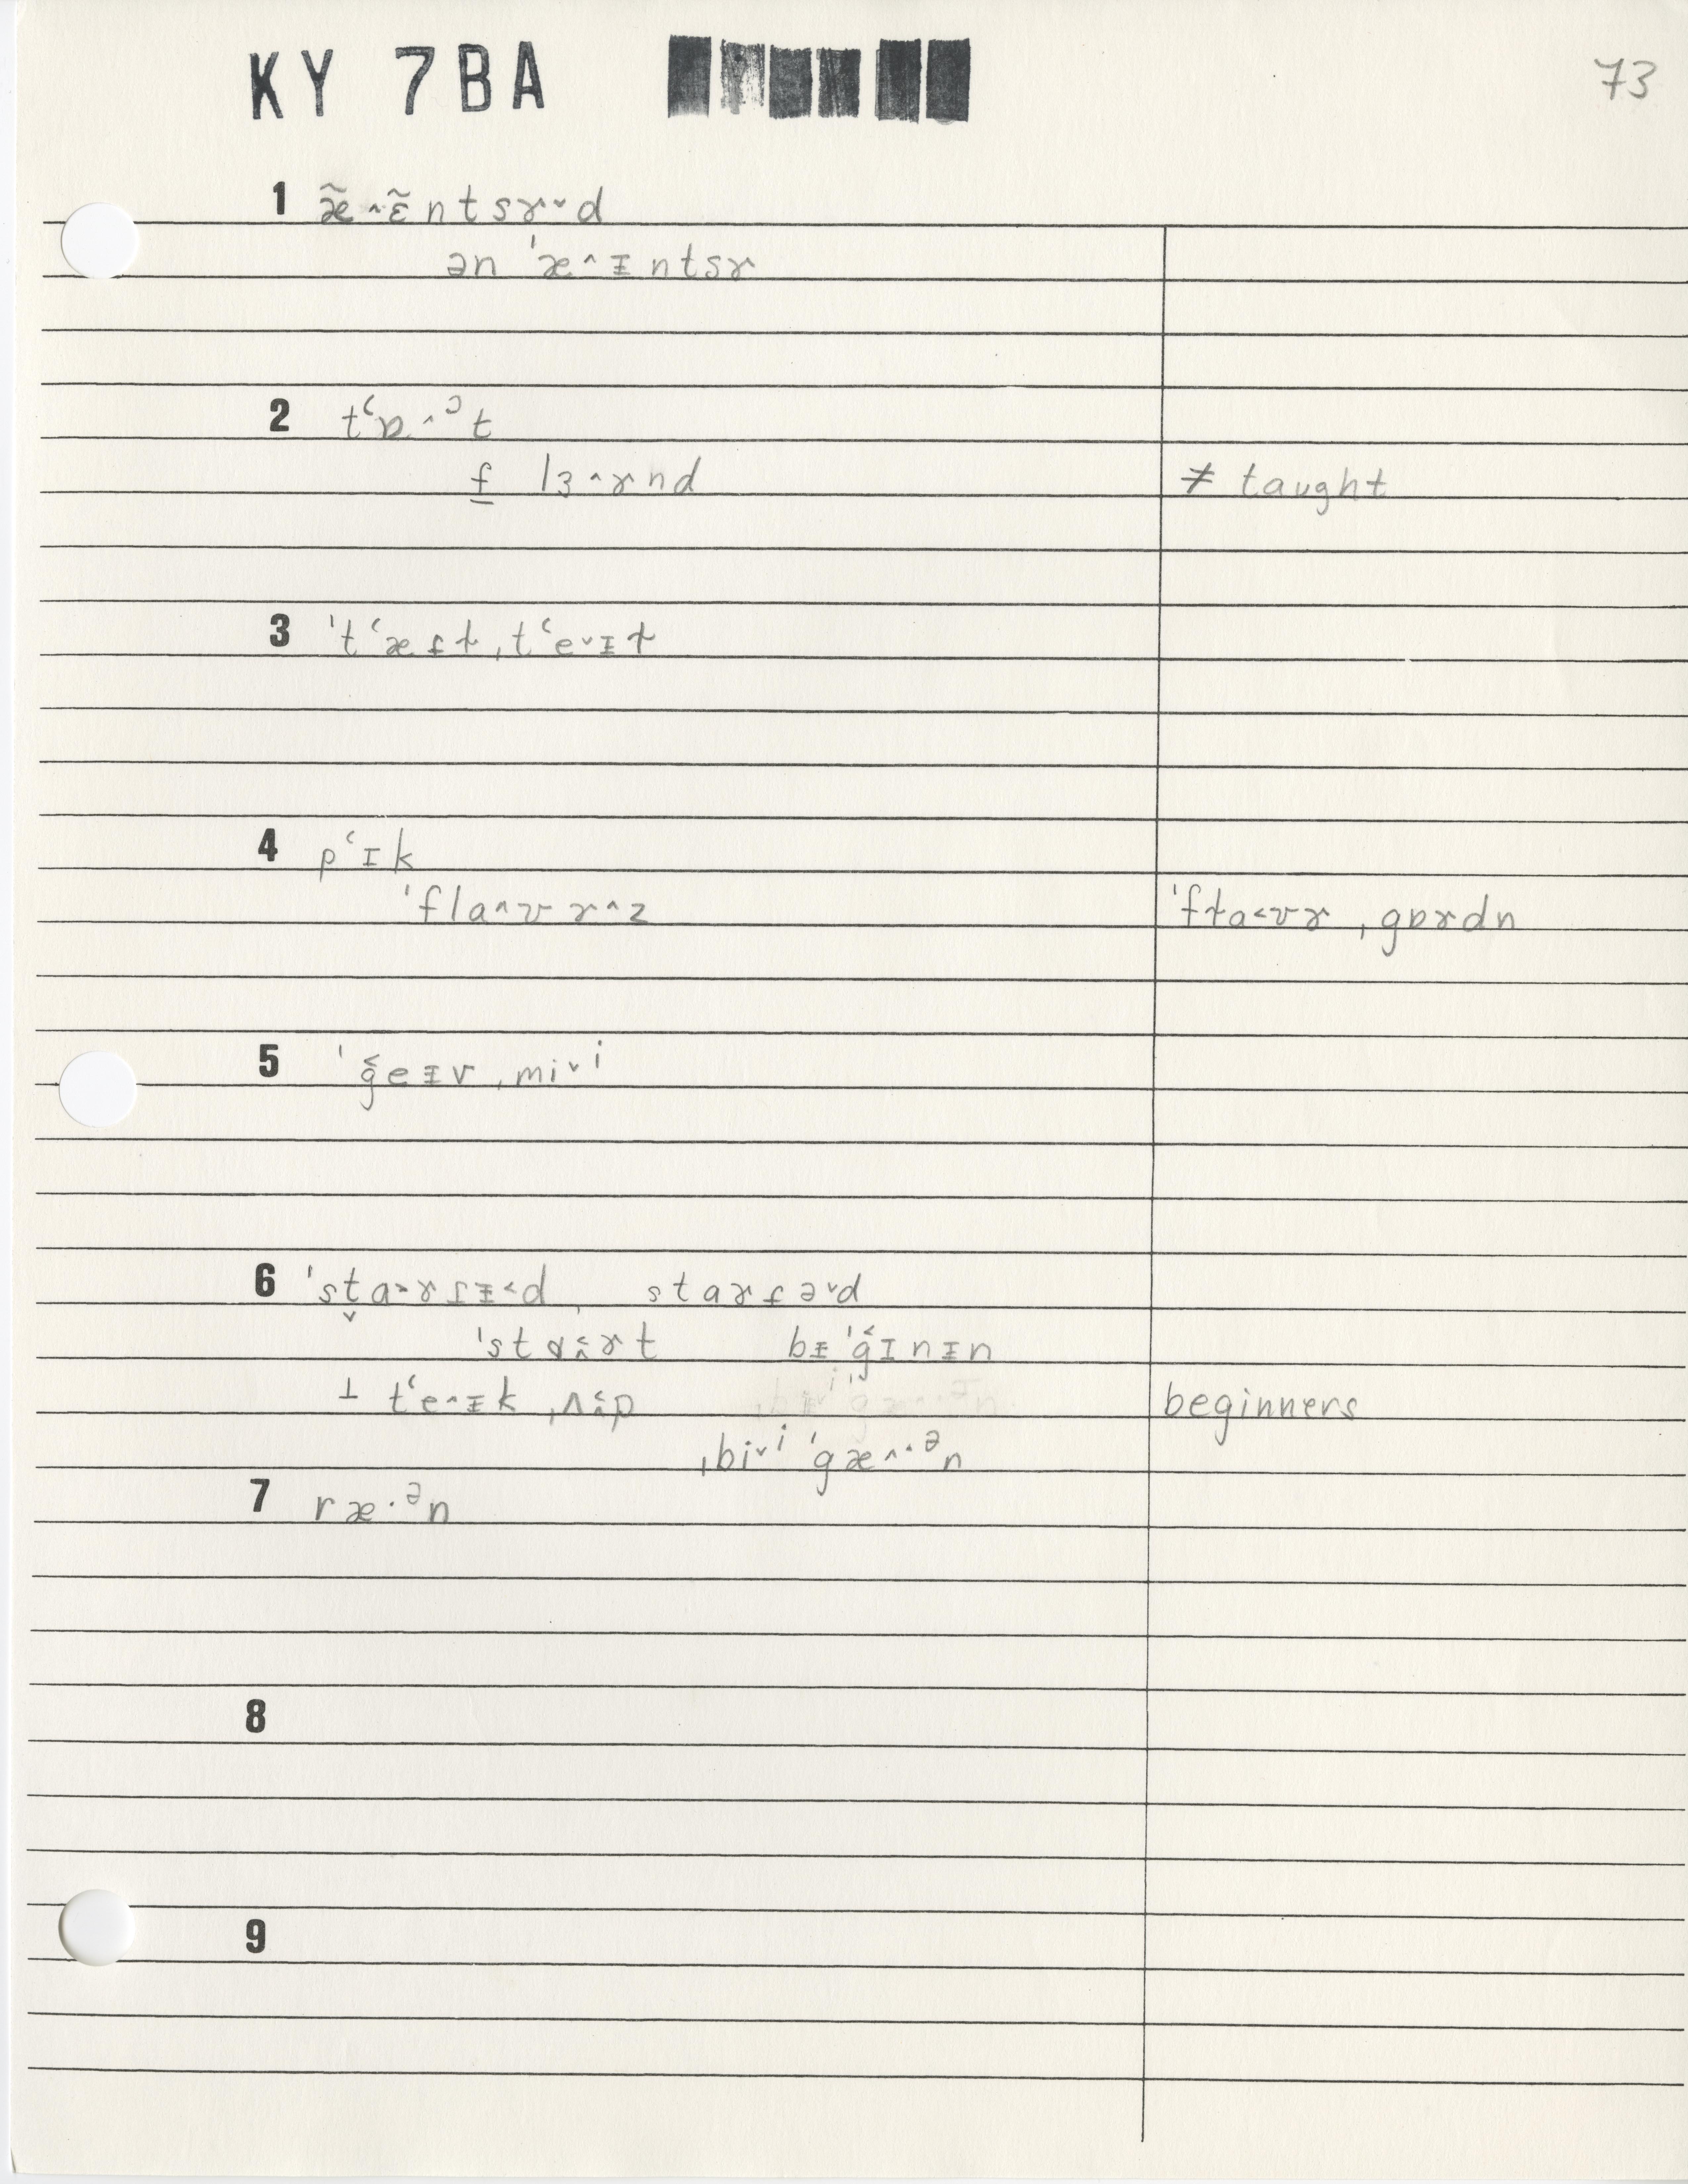 KY 7BA 73
1 æ̃ ˄ ɛ̃ n t s ɤ ˅ d
ən ˈæ ˄ ᵻ n t s ɤ
2 tʻɒ ˄ ᵓ t
f lɜ ˄ ɤ n d ≠ taught
3 ˈtʻæ t ˌtʻe ˅ ɪ t
4 pʻɪk
ˈfla ˄ ʊ ɤ ˄ z ˈfɫa ˂ ʊ ɤ ˌgɒɤdn
5 ˈg̑e ᵻ v ˌmi ˅ ⁱ
6 ˈsta ˃ ɤ ᵻ ˂ d staɤ ə ˅ d
ˈstɑ ɤ t bᵻ ˈgɪnᵻn
⊥ tʻe ˄ ᵻk ˌʌp beginners
ˌbi ˅ ⁱ ˈgæ ˄ · ᵊn
7 ræ · ᵊn
8
9